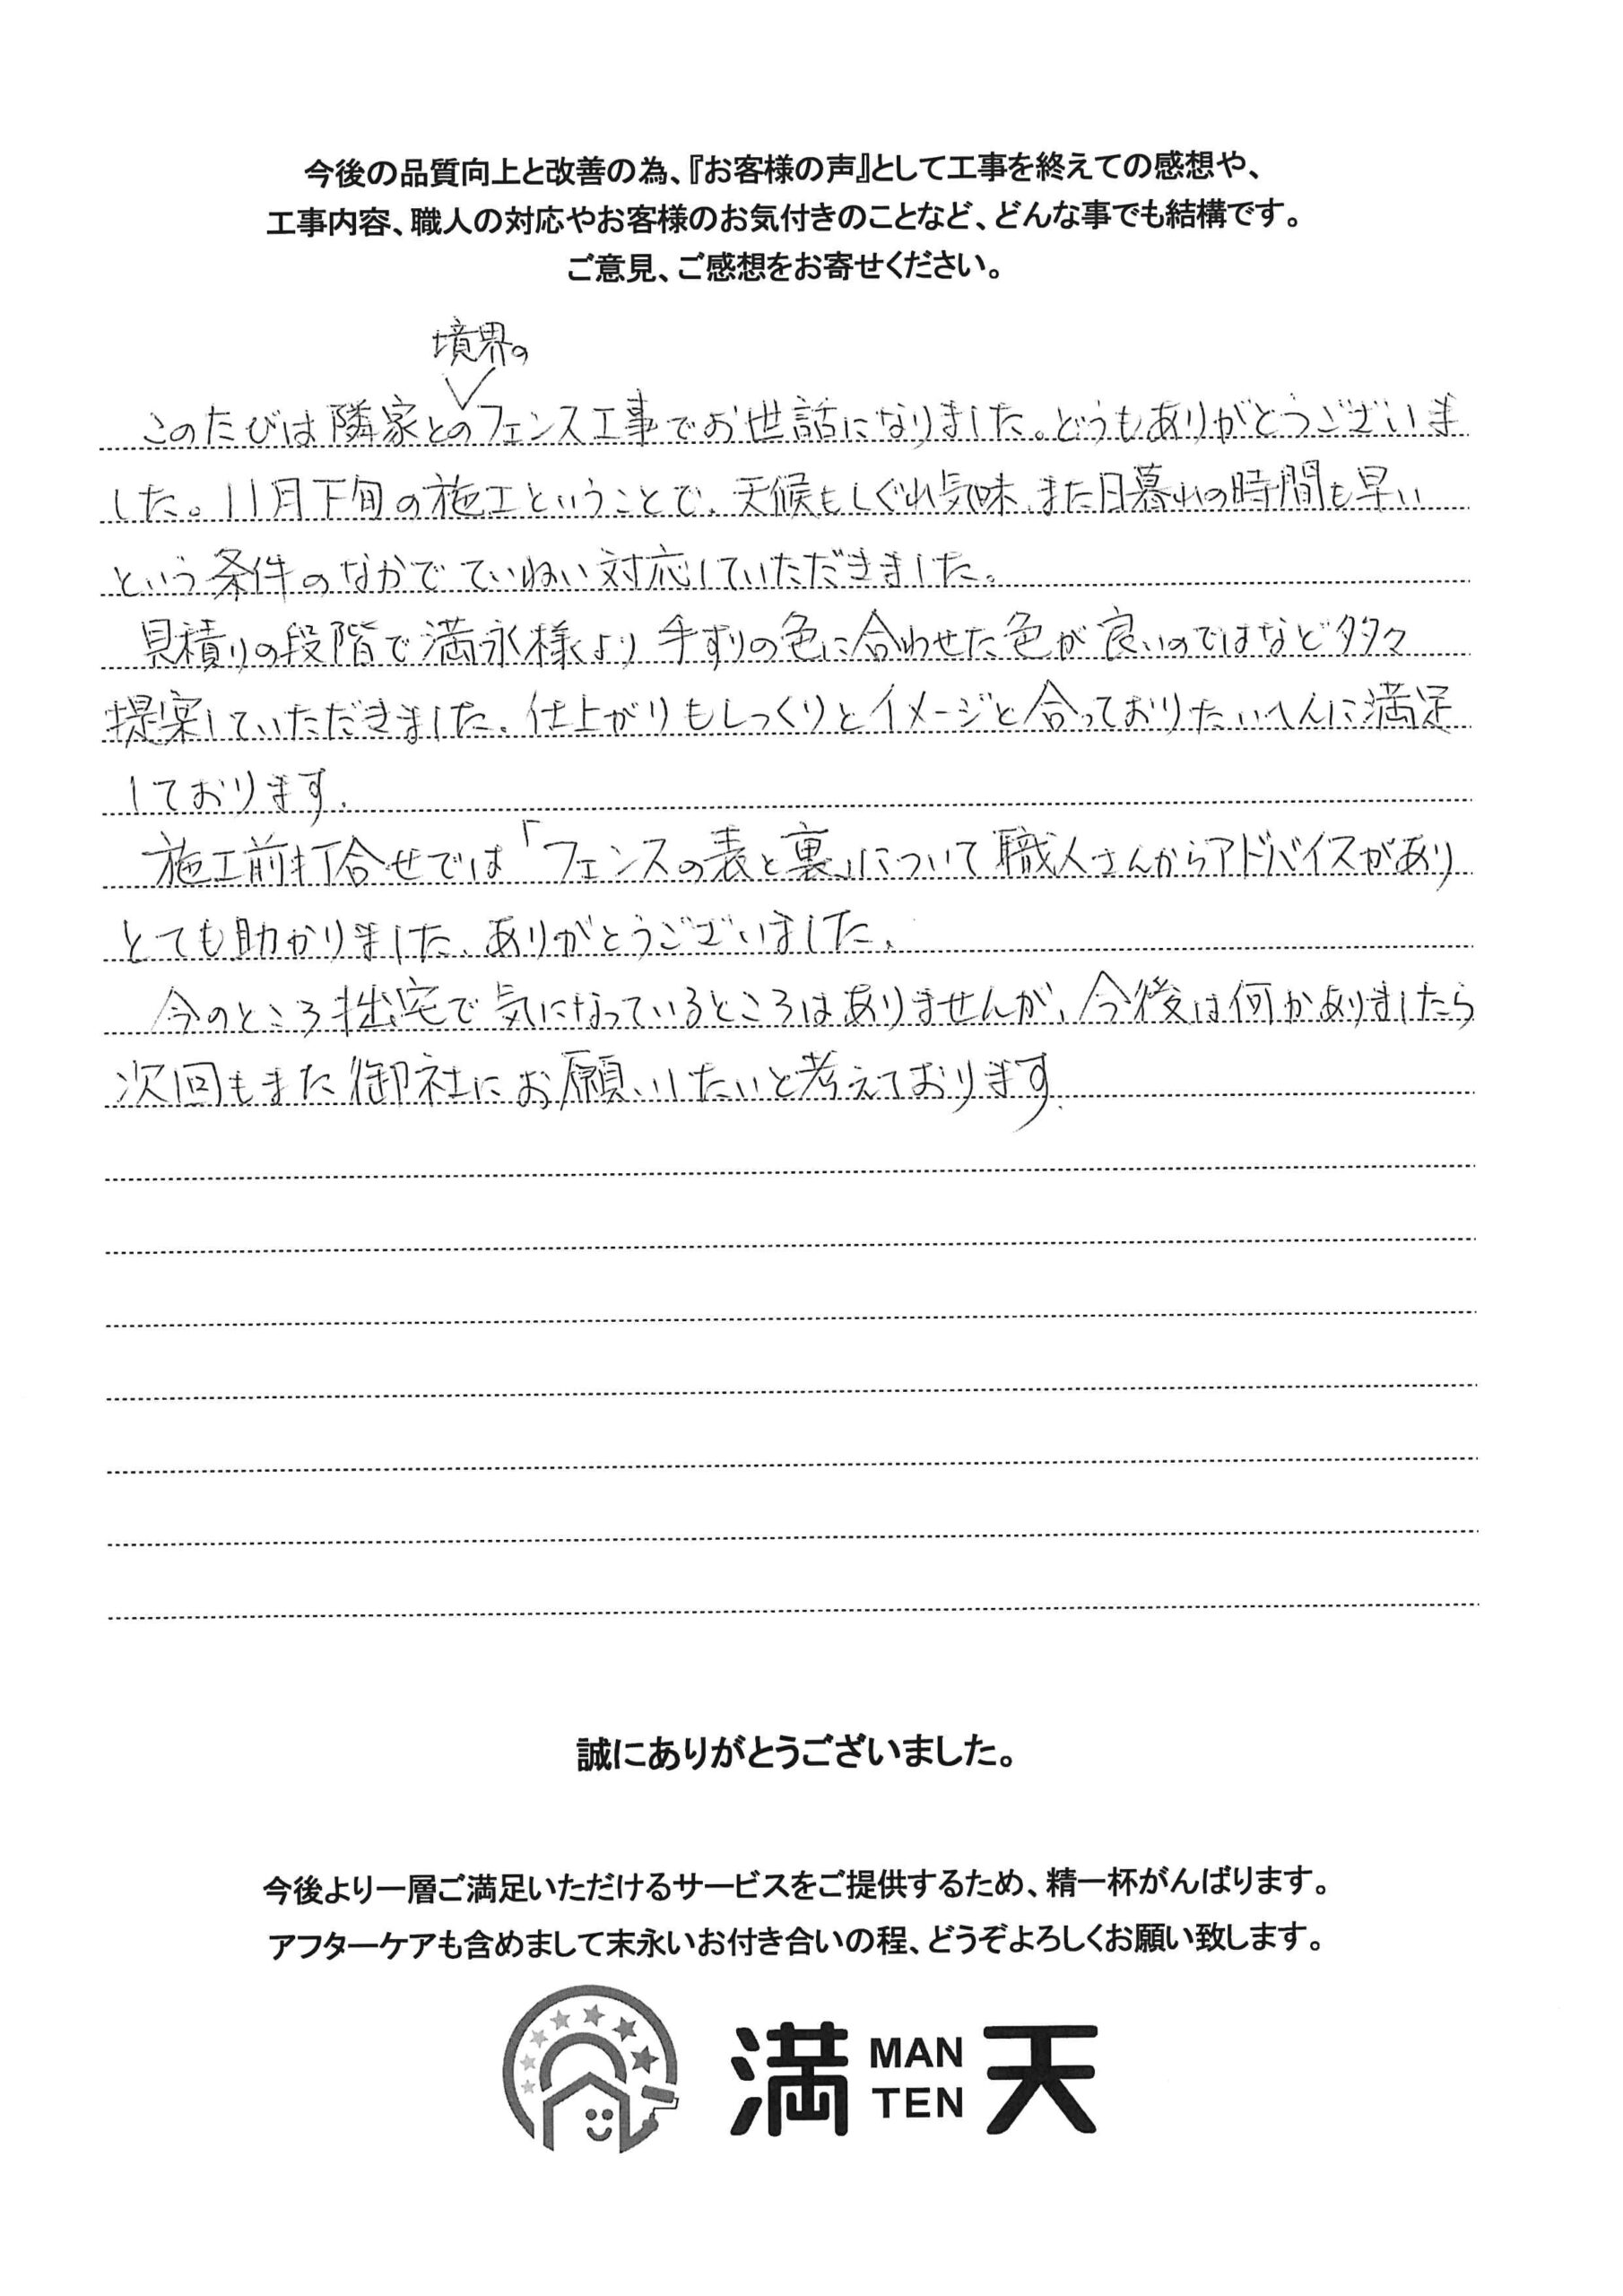 今後の品質向上と改善の為、『お客様の声』として工事を終えての感想や、
工事内容、職人の対応やお客様のお気付きのことなど、どんな事でも結構です。
ご意見、ご感想をお寄せください。
境界の
このたびは隣家とのフェンス工事でお世話になりました。どうもありがとうございま
した。11月下旬の施工ということで、天候もしぐれ気味、また日暮れの時間も早い
という条件のなかでていねい対応していただきました。
見積りの段階で満永様より手すりの色に合わせた色が良いのではなど多々
提案していただきました。仕上がりもしっくりとイメージと合っておりたいへんに満足
しております。
施工前打合せでは「フェンスの表と裏」について職人さんからアドバイスがあり
とても助かりました、ありがとうございました。
今のところ拙宅で気になっているところはありませんが、今後は何かありましたら
次回もまた御社にお願いしたいと考えております。
誠にありがとうございました。
今後より一層ご満足いただけるサービスをご提供するため、精一杯がんばります。
アフターケアも含めまして末永いお付き合いの程、どうぞよろしくお願い致します。
満 MAN TEN 天